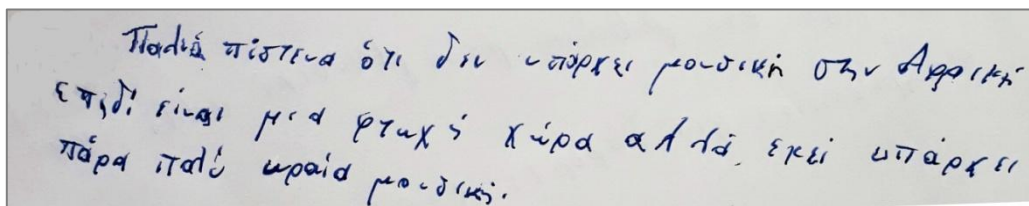 Παλιά πίστευα ότι δεν υπάρχει μουσική στην Αφρική
επιδί είναι μια φτωχή χώρα αλλά εκεί υπάρχει
πάρα πολύ ωραία μουσική.